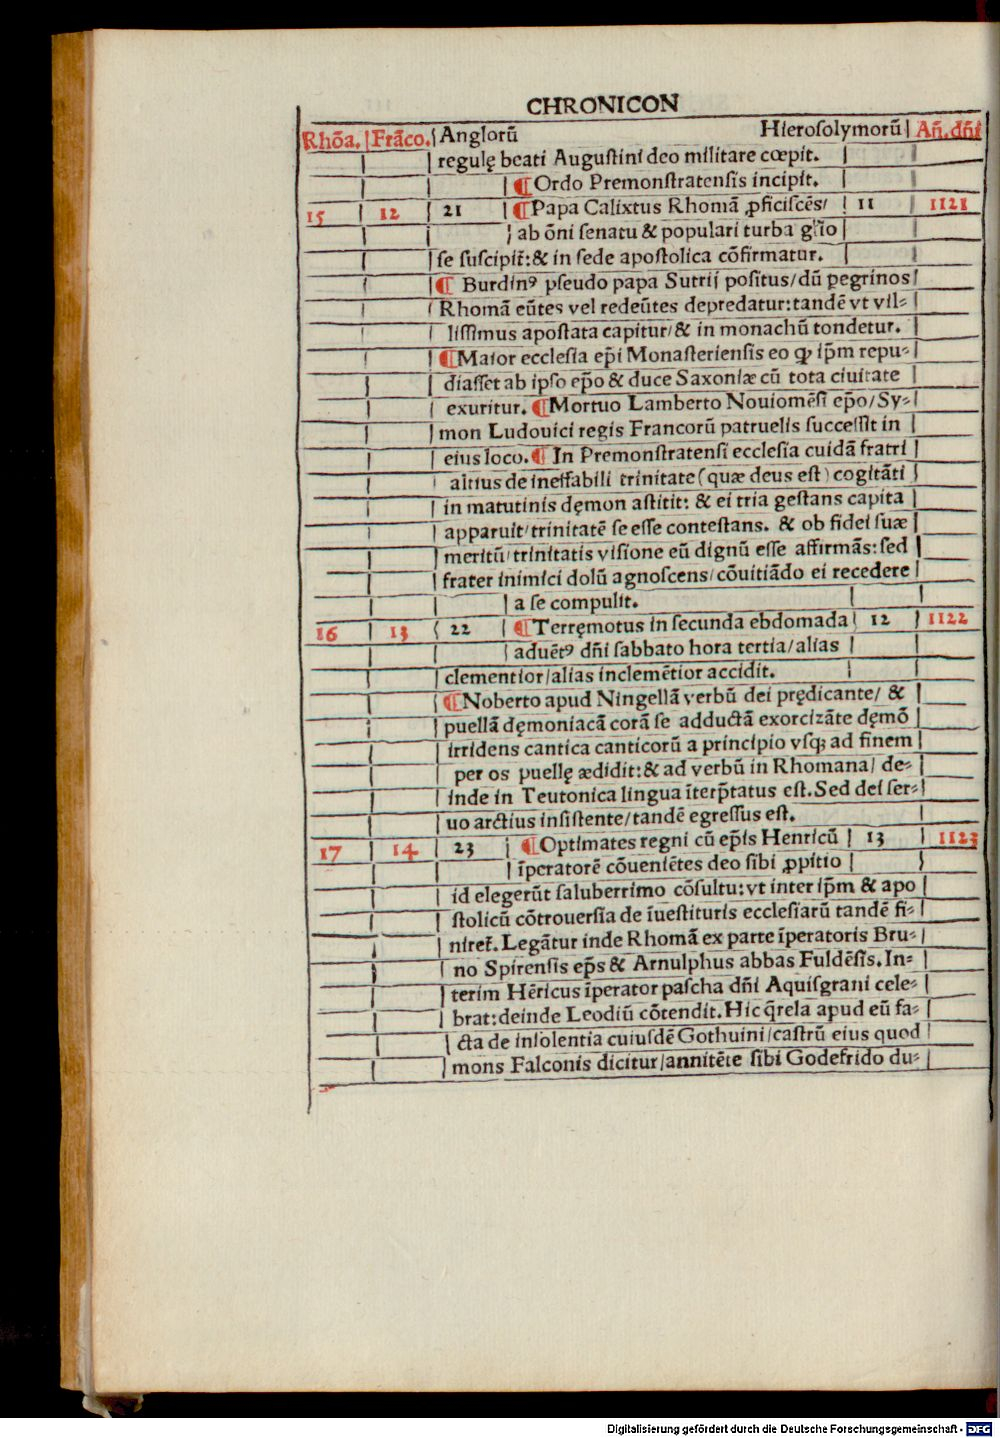 CHRONICON
Rhōa. Frāco. Anglorū Hierosolymorū Añ. dñi
regulę beati Augustini deo militare cœpit.
¶ Ordo Premonstratensis incipit.
15 12 21 ¶ Papa Calixtus Rhomā ꝓficiscēs/ 11 1121
ab ōni senatu & populari turba glīo
se suscipit̃: & in sede apostolica cōfirmatur.
¶ Burdinꝰ pseudo papa Sutrij positus/dū pegrinos
Rhomā eūtes vel redeūtes depredatur: tandē vt vil⸗
lissimus apostata capitur/& in monachū tondetur.
¶ Maior ecclesia ep̄i Monasteriensis eo ꝙ ip̄m repu⸗
diasset ab ipso ep̄o & duce Saxoniæ cū tota ciuitate
exuritur. ¶ Mortuo Lamberto Nouiomēsi ep̄o/Sy⸗
mon Ludouici regis Francorū patruelis successit in
eius loco. ¶ In Premonstratensi ecclesia cuidā fratri
altius de ineffabili trinitate (quæ deus est) cogitāti
in matutinis dęmon astitit: & ei tria gestans capita
apparuit/trinitatē se esse contestans. & ob fidei suæ
meritū/trinitatis visione eū dignū esse affirmās: sed
frater inimici dolū agnoscens/cōuitiādo ei recedere
a se compulit.
16 13 22 ¶ Terręmotus in secunda ebdomada 12 1122
aduētꝰ dñi sabbato hora tertia/alias
clementior/alias inclemētior accidit.
¶ Noberto apud Ningellā verbū dei prędicante/ &
puellā dęmoniacā corā se adductā exorcizāte dęmō
irridens cantica canticorū a principio vsqȝ ad finem
per os puellę ædidit: & ad verbū in Rhomana/ de⸗
inde in Teutonica lingua īterp̄tatus est. Sed dei ser⸗
uo arctius insistente/tandē egressus est.
17 14 23 ¶ Optimates regni cū ep̄is Henricū 13 1123
īperatorē cōueniētes deo sibi ꝓpitio
id elegerūt saluberrimo cōsultu: vt inter ip̄m & apo
stolicū cōtrouersia de īuestituris ecclesiarū tandē fi⸗
niret̃. Legātur inde Rhomā ex parte īperatoris Bru⸗
no Spirensis ep̄s & Arnulphus abbas Fuldēsis. In⸗
terim Hēricus īperator pascha dñi Aquisgrani cele⸗
brat: deinde Leodiū cōtendit. Hic q̄rela apud eū fa⸗
cta de insolentia cuiusdē Gothuini/castrū eius quod
mons Falconis dicitur/annitēte sibi Godefrido du⸗
Digitalisierung gefördert durch die Deutsche Forschungsgemeinschaft - DFG